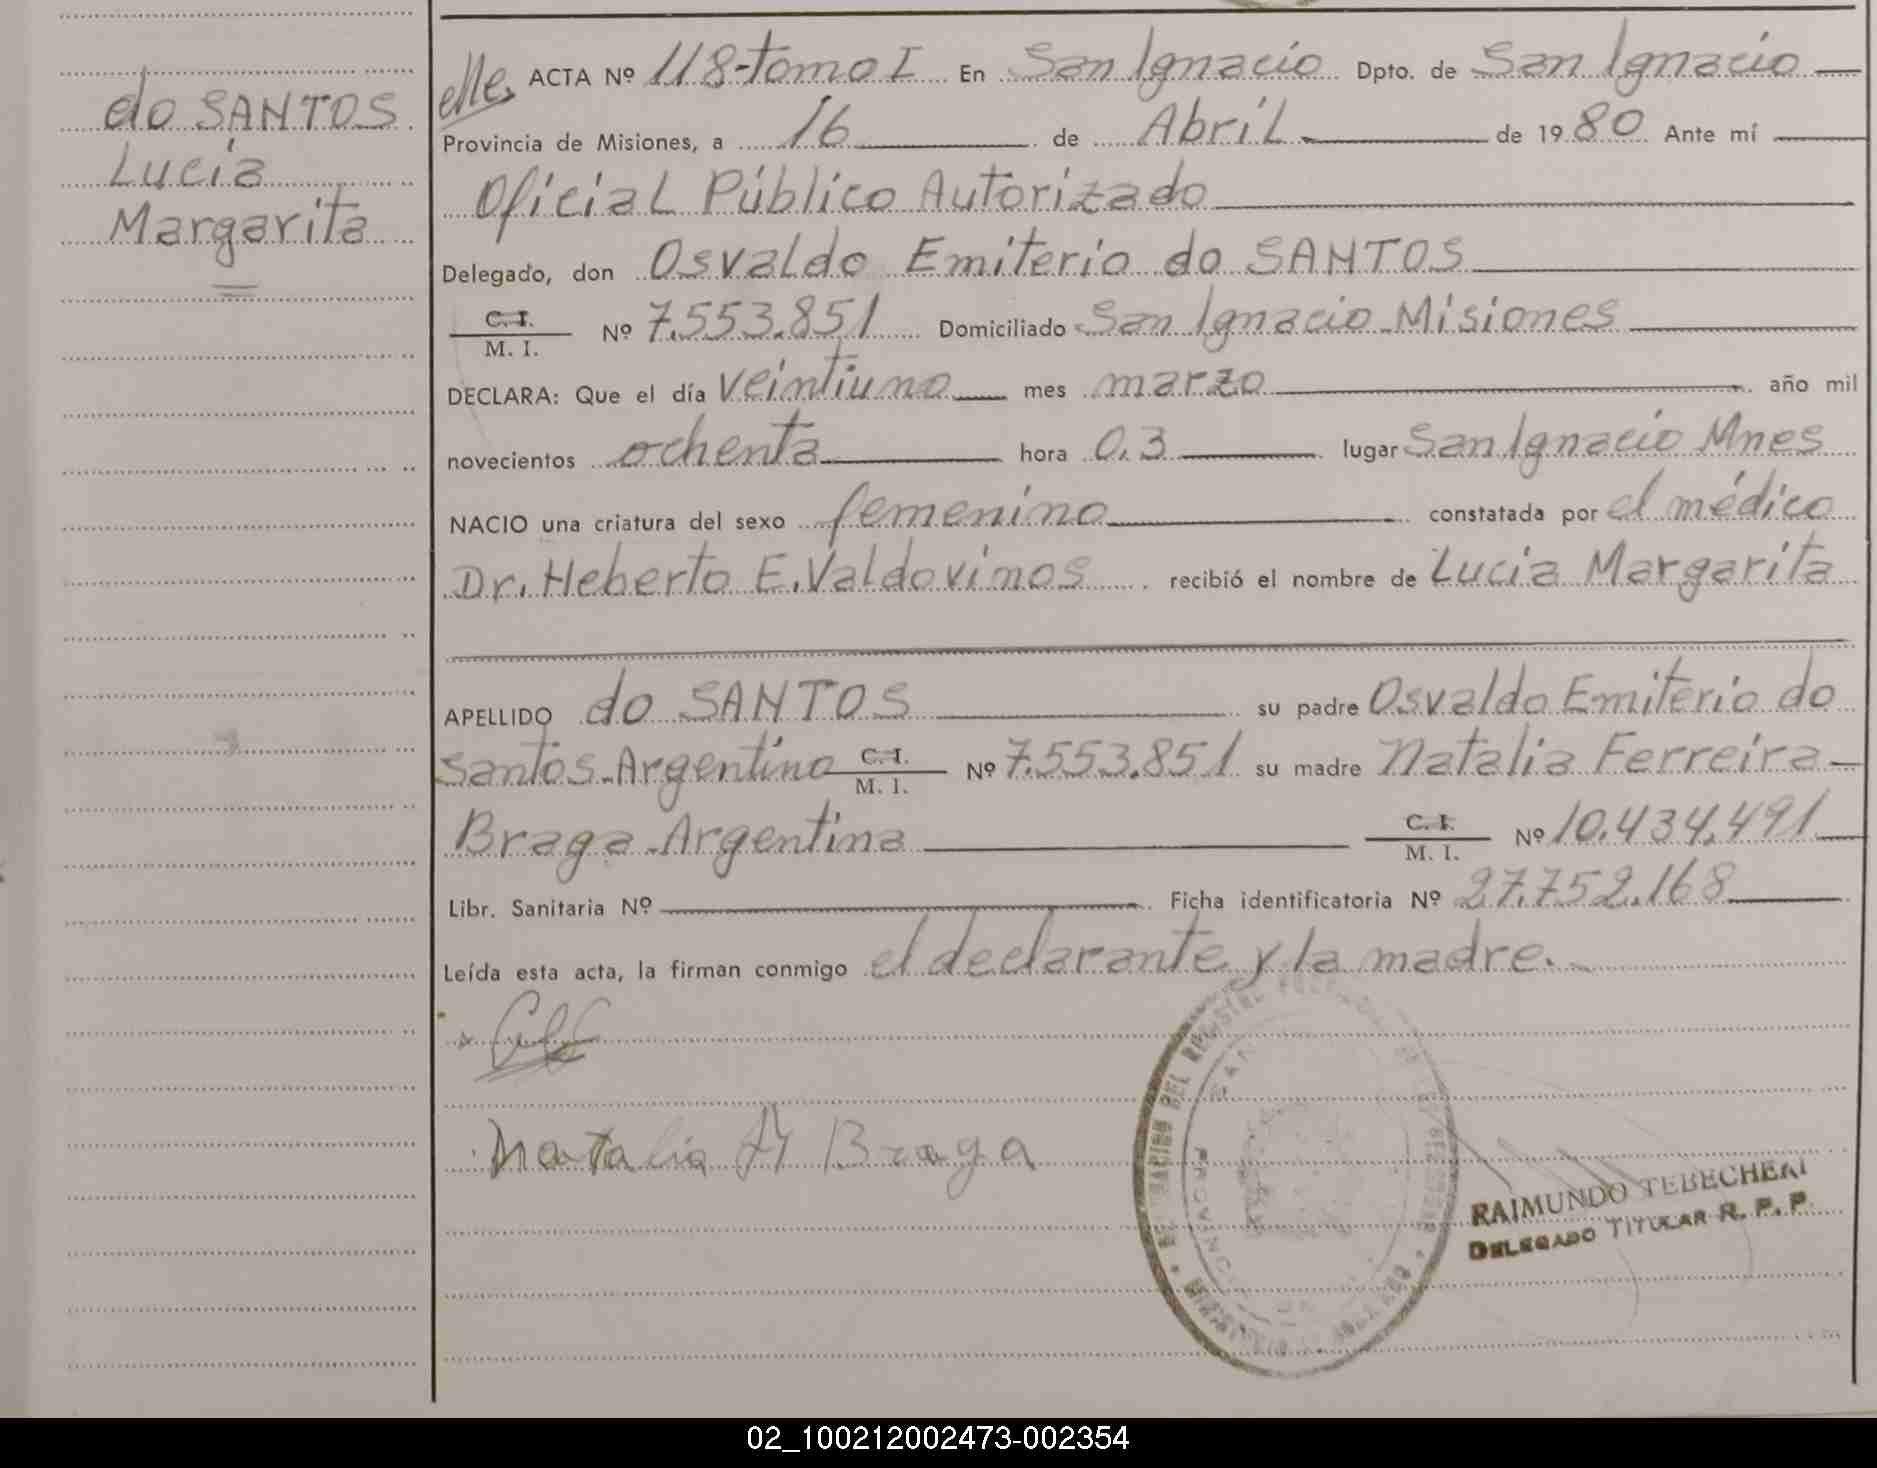 do SANTOS
Lucía
Margarita
ACTA Nº 118-tomo I En San Ignacio Dpto. de San Ignacio
Provincia de Misiones, a 16 de Abril de 1980 Ante mí
Oficial Público Autorizado
Delegado, don Osvaldo Emiterio do SANTOS
C. I.
M. I. Nº 7.553.851 Domiciliado San Ignacio Misiones
DECLARA: Que el día veintiuno mes marzo año mil
novecientos ochenta hora 0.3 lugar San Ignacio Mnes
NACIO una criatura del sexo femenino constatada por el médico
Dr. Heberto E. Valdovinos recibió el nombre de Lucía Margarita
APELLIDO do SANTOS su padre Osvaldo Emiterio do
Santos-Argentino C. I. M. I. Nº 7.553.851 su madre Natalia Ferreira
Braga-Argentina C. I. M. I. Nº 10.434.491
Libr. Sanitaria Nº Ficha identificatoria Nº 27.752.168
Leída esta acta, la firman conmigo el declarante y la madre.
Natalia Braga
RAIMUNDO TEBECHERI
DELEGADO TITULAR R. P. P.
02_100212002473-002354